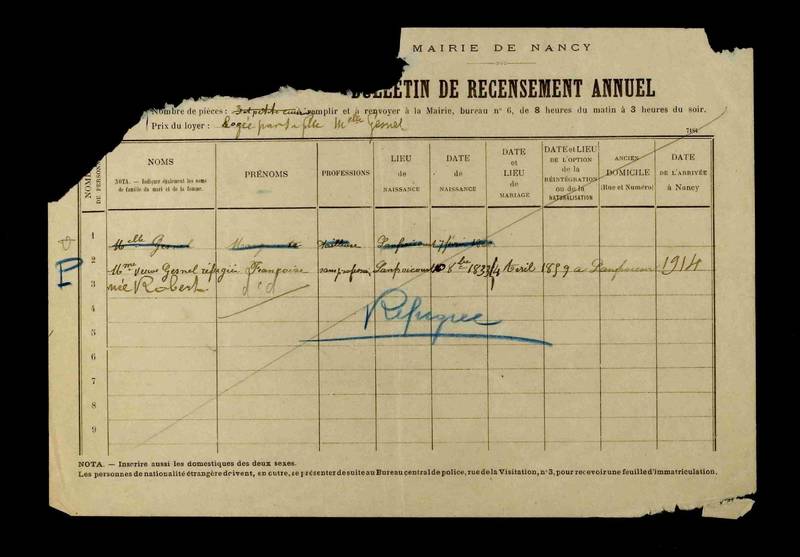 MAIRIE DE NANCY
BULLETIN DE RECENSEMENT ANNUEL
Nombre de pièces : remplir et à renvoyer à la Mairie, bureau n° 6, de 8 heures du matin à 3 heures du soir.
Prix du loyer : Logée par sa fille Melle Gesnel
7184
NOMBRE DE PERSONNES
NOMS
NOTA. — Indiquer également les noms de famille du mari et de la femme.
PRÉNOMS
PROFESSIONS
LIEU de NAISSANCE
DATE de NAISSANCE
DATE et LIEU de MARIAGE
DATE et LIEU DE L'OPTION de la RÉINTÉGRATION ou de la NATURALISATION
ANCIEN DOMICILE (Rue et Numéro)
DATE DE L'ARRIVÉE à Nancy
1 Melle Gesnel
2 Mme veuve Gesnel réfugiée Françoise 8bre 1833 4 Avril 1859 a 1914
3 née Robert dcd
4 Réfugiée
5
6
7
8
9
NOTA. — Inscrire aussi les domestiques des deux sexes.
Les personnes de nationalité étrangère doivent, en outre, se présenter de suite au Bureau central de police, rue de la Visitation, n° 3, pour recevoir une feuille d'immatriculation.